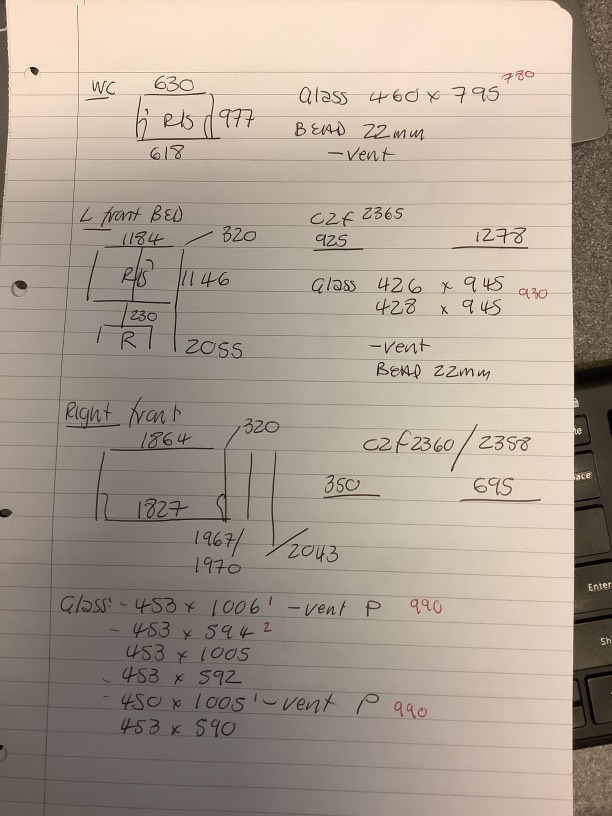 WC 630 Glass 460 x 795 780
R/S 977 BEAD 22mm
618 -vent
L front BED C2f 2365
1184 320 925 1278
R/S 1146 Glass 426 x 945 930
428 x 945
1230
R 2055 -vent
BEAD 22mm
Right front
1864 320 C2f 2360/2358
350 695
1827
1967/ 2043
1970
Glass: - 453 x 1006 1 -vent P 990
- 453 x 594 2
453 x 1005
- 453 x 592
- 450 x 1005 1 -vent P 990
453 x 590
Enter
Sh